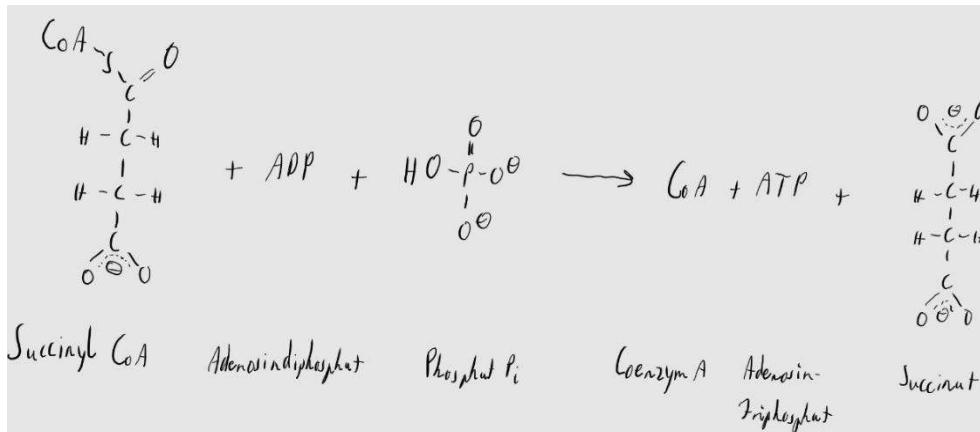 CoA
S O
C
H - C - H
H - C - H
C
O ⊖ O
+ ADP +
O
HO - P - O⊖
O⊖
→
CoA + ATP +
O ⊖ O
C
H - C - H
H - C - H
C
O ⊖ O
Succinyl CoA
Adenosindiphosphat
Phosphat Pi
Coenzym A
Adenosin-
Triphosphat
Succinat